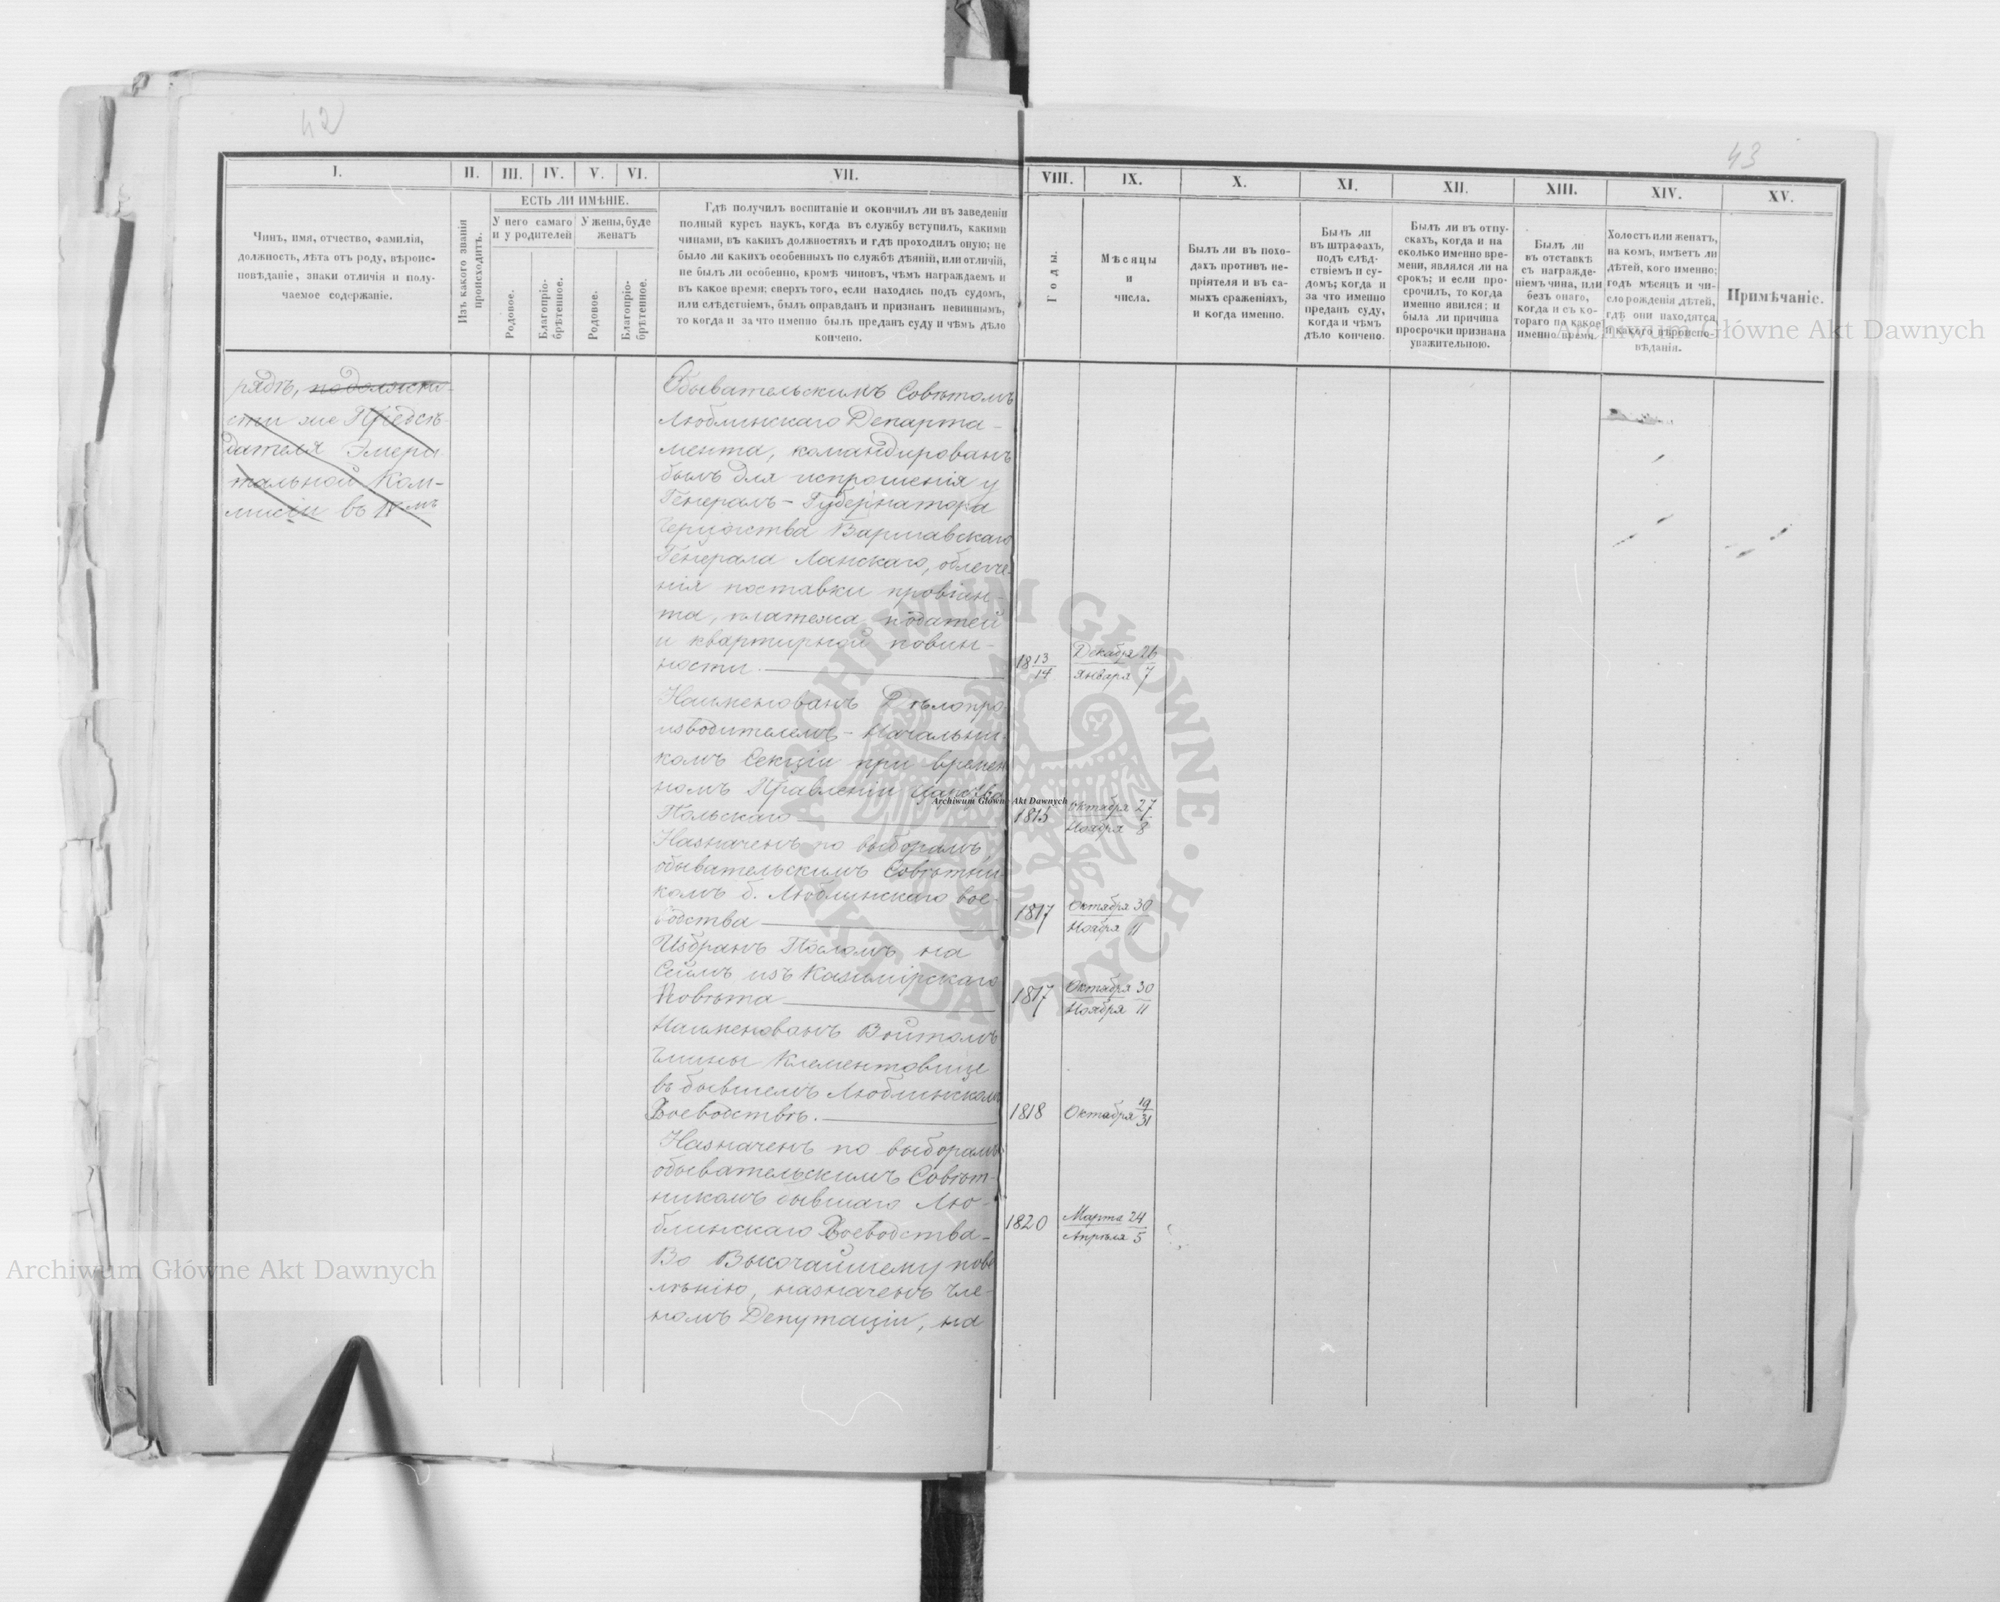 42
43
I.
II.
III.
IV.
V.
VI.
VII.
VIII.
IX.
X.
XI.
XII.
XIII.
XIV.
XV.
Чинъ, имя, отчество, фамилія,
должность, лѣта отъ роду, вѣроис-
повѣданіе, знаки отличія и полу-
чаемое содержаніе.
Изъ какого званія
происходитъ.
ЕСТЬ ЛИ ИМѢНІЕ.
У него самаго
и у родителей
У жены, буде
женатъ
Родовое.
Благопріо-
брѣтенное.
Родовое.
Благопріо-
брѣтенное.
Гдѣ получилъ воспитаніе и окончилъ ли въ заведеніи
полный курсъ наукъ, когда въ службу вступилъ, какими
чинами, въ какихъ должностяхъ и гдѣ проходилъ оную; не
было ли какихъ особенныхъ по службѣ дѣяній, или отличій,
не былъ ли особенно, кромѣ чиновъ, чѣмъ награждаемъ и
въ какое время; сверхъ того, если находясь подъ судомъ,
или слѣдствіемъ, былъ оправданъ и признанъ невиннымъ,
то когда и за что именно былъ преданъ суду и чѣмъ дѣло
кончено.
Годы.
Мѣсяцы
и
числа.
Былъ ли въ похо-
дахъ противъ не-
пріятеля и въ са-
мыхъ сраженіяхъ,
и когда именно.
Былъ ли
въ штрафахъ,
подъ слѣд-
ствіемъ и су-
домъ; когда и
за что именно
преданъ суду,
когда и чѣмъ
дѣло кончено.
Былъ ли въ отпу-
скахъ, когда и на
сколько именно вре-
мени, являлся ли на
срокъ; и если про-
срочилъ, то когда
именно явился; и
была ли причина
просрочки признана
уважительною.
Былъ ли
въ отставкѣ
съ награжде-
ніемъ чина, или
безъ онаго,
когда и съ ко-
тораго по какое
именно время.
Холостъ или женатъ,
на комъ, имѣетъ ли
дѣтей, кого именно;
годъ мѣсяцъ и чи-
сло рожденія дѣтей,
гдѣ они находятся
и какого вѣроиспо-
вѣданія.
Примѣчаніе.
рядѣ, по должно-
сти же Предсѣ-
дателя Эмери
тальной Ком-
мисіи въ IVмъ
Обывательскимъ Совѣтомъ
Люблинскаго Департа-
мента, командированъ
былъ для испрошенія у
Генералъ-Губернатора
Герцогства Варшавскаго
Генерала Ланскаго, облегче-
нія поставки провіян-
та, платежа податей
и квартирной повин-
ности.
18 13/14 Декабря 26
Января 7
Наименованъ Дѣлопро
изводителемъ-Начальни-
комъ Секціи при времен
номъ Правленіи Царства
Польскаго
1815 Октября 27
Ноября 8
Назначенъ по выборамъ
обывательскимъ Совѣтни-
комъ б. Люблинскаго Вое-
водства
1817 Октября 30
Ноября 11
Избранъ Посломъ на
Сеймъ изъ Казимірскаго
Повѣта
1817 Октября 30
Ноября 11
Наименованъ Войтомъ
гмины Клементовице
въ бывшемъ Люблинскомъ
Воеводствѣ.
1818 Октября 19/31
Назначенъ по выборамъ
обывательскимъ Совѣт-
никомъ бывшаго Лю-
блинскаго Воеводства-
1820 Марта 24
Апрѣля 5
По Высочайшему пове
лѣнію, назначенъ Чле-
номъ Депутаціи, на
Archiwum Główne Akt Dawnych
Archiwum Główne Akt Dawnych
Archiwum Główne Akt Dawnych
ARCHIWUM GŁÓWNE · AKT DAWNYCH ·